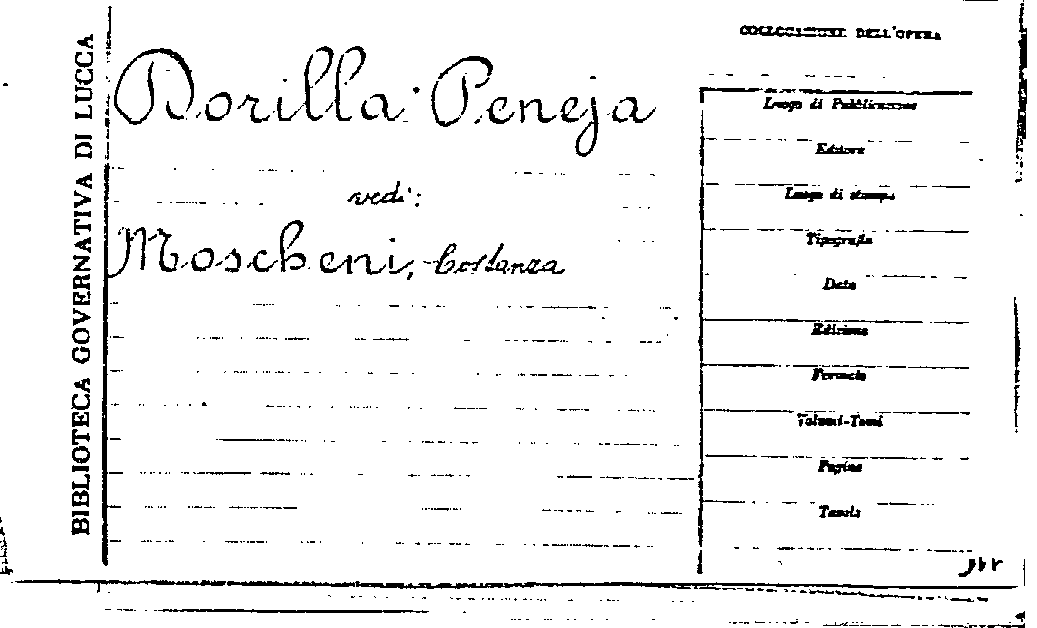 BIBLIOTECA GOVERNATIVA DI LUCCA
COLLOCAZIONE DELL'OPERA
Dorilla Peneja
vedi:
Moscheni, Costanza
Luogo di Pubblicazione
Editore
Luogo di stampa
Tipografia
Data
Edizione
Formato
Volumi-Tomi
Pagine
Tavole